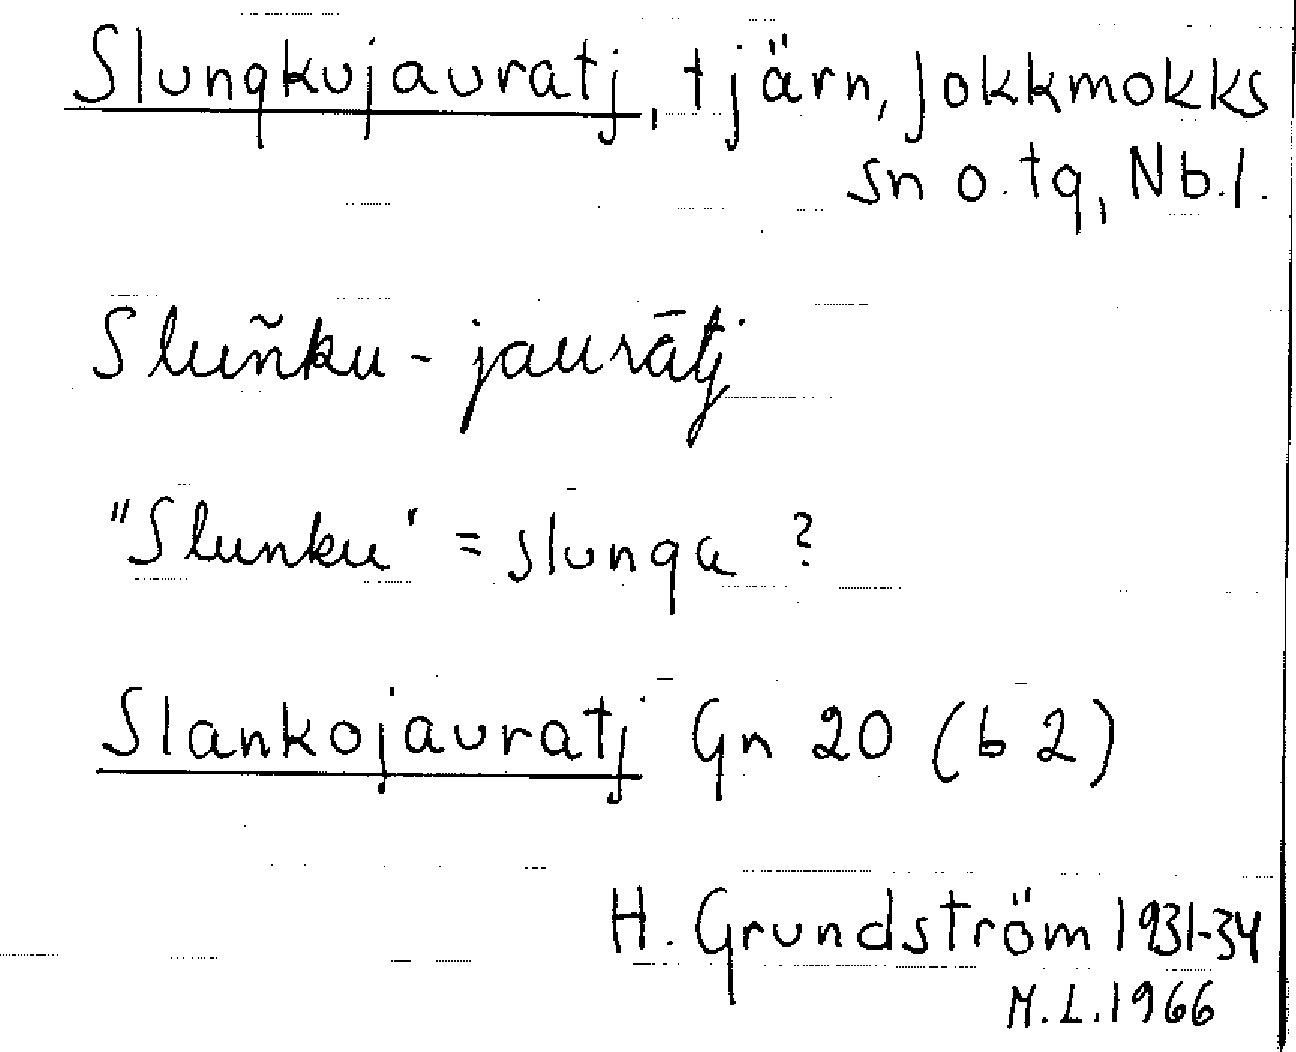 Slungkujauratj, tjärn, Jokkmokks
sn o. tg, Nb. l.
Sluñku-jaurātj
"Slunku" = slunga ?
Slankojauratj Gn 20 (b 2)
H. Grundström 1931-34
M.L. 1966